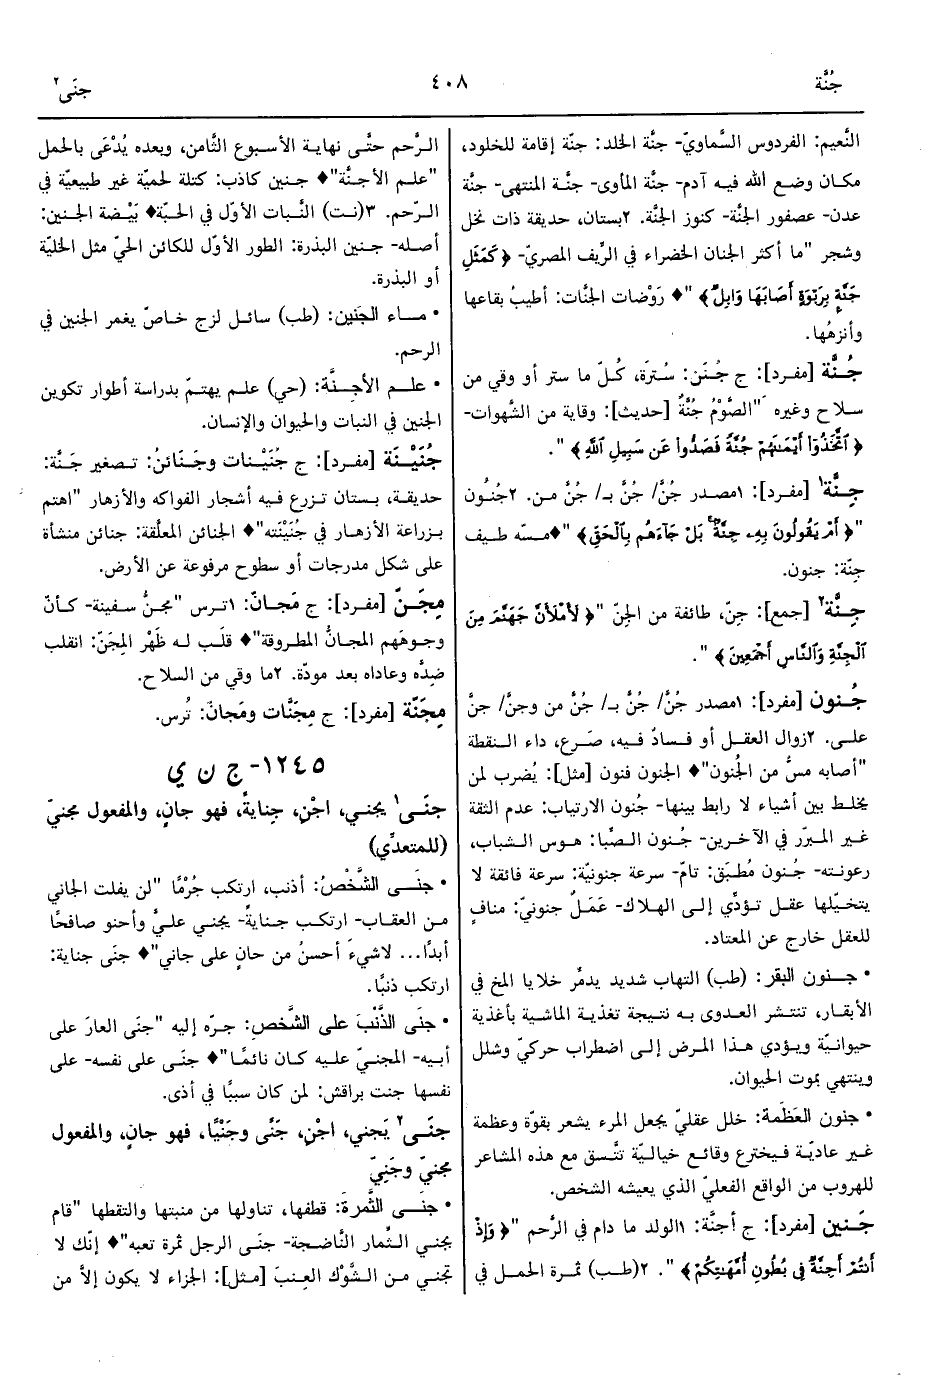 جُنَّة
٤٠٨
جنَى٢
النَّعيم: الفردوس السَّماويّ- جنَّة الخلد: جنّة إقامة للخلود،
مكان وضع الله فيه آدم- جنَّة المأوى- جنَّة المنتهى- جنَّة
عدن- عصفور الجنَّة- كنوز الجنَّة. ٢بستان، حديقة ذات نخل
وشجر "ما أكثر الجنان الخضراء في الرِّيف المصريّ- ﴿ كَمَثَلِ
جَنَّةٍ بِرَبْوَةٍ أَصَابَهَا وَابِلٌ ﴾ "♦ رَوْضات الجنَّات: أطيبُ بقاعها
وأنزهُها.
جُنَّة [مفرد]: ج جُنَن: سُترَة، كُلّ ما ستر أو وقي من
سلاح وغيره "الصَّوْمُ جُنَّةٌ [حديث]: وقاية من الشَّهوات-
﴿ ٱتَّخَذُوٓاْ أَيْمَٰنَهُمْ جُنَّةً فَصَدُّواْ عَن سَبِيلِ ٱللَّهِ ﴾ ".
جِنَّة١ [مفرد]: ١مصدر جُنَّ/ جُنَّ بـ/ جُنَّ من. ٢جُنُون
"﴿ أَمْ يَقُولُونَ بِهِۦ جِنَّةٌۢ بَلْ جَآءَهُم بِٱلْحَقِّ ﴾ "♦مسّه طيف
جنّة: جنون.
جِنَّة٢ [جمع]: جنّ، طائفة من الجنّ "﴿ لَأَمْلَأَنَّ جَهَنَّمَ مِنَ
ٱلْجِنَّةِ وَٱلنَّاسِ أَجْمَعِينَ ﴾ ".
جُنون [مفرد]: ١مصدر جُنَّ/ جُنَّ بـ/ جُنّ من وجنَّ/ جنَّ
على. ٢زوال العقل أو فسادٌ فيه، صَرَع، داء النقطة
"أصابه مسٌّ من الجُنون"♦ الجنون فنون [مثل]: يُضرب لمن
يخلط بين أشياء لا رابط بينها- جُنون الارتياب: عدم الثقة
غير المبرّر في الآخرين- جُنون الصِّبا: هوس الشباب،
رعونته- جُنون مُطبَق: تامّ- سرعة جنونيّة: سرعة فائقة لا
يتخيّلها عقل تؤدِّي إلى الهلاك- عَمَلٌ جنونيّ: منافٍ
للعقل خارج عن المعتاد.
• جنون البقر: (طب) التهاب شديد يدمِّر خلايا المخ في
الأبقار، تنتشر العدوى به نتيجة تغذية الماشية بأغذية
حيوانيّة ويؤدي هذا المرض إلى اضطراب حركيّ وشلل
وينتهي بموت الحيوان.
• جنون العَظَمة: خلل عقليّ يجعل المرء يشعر بقوّة وعظمة
غير عاديّة فيخترع وقائع خياليّة تتَّسق مع هذه المشاعر
للهروب من الواقع الفعليّ الذي يعيشه الشخص.
جَنين [مفرد]: ج أجنَّة: ١الولد ما دام في الرَّحم "﴿ وَإِذْ
أَنتُمْ أَجِنَّةٌ فِي بُطُونِ أُمَّهَٰتِكُمْ ﴾ ". ٢(طب) ثمرة الحمل في
الرَّحم حتَّى نهاية الأسبوع الثَّامن، وبعده يُدْعَى بالحمل
"علم الأجنَّة"♦ جنين كاذب: كتلة لحميّة غير طبيعيّة في
الرّحم. ٣(نت) النَّبات الأوّل في الحبّة♦ بَيْضة الجنين:
أصله- جنين البذرة: الطور الأوّل للكائن الحيّ مثل الخليّة
أو البذرة.
• ماء الجَنين: (طب) سائل لزج خاصّ يغمر الجنين في
الرحم.
• علم الأجنَّة: (حي) علم يهتمّ بدراسة أطوار تكوين
الجنين في النبات والحيوان والإنسان.
جُنَيْنَة [مفرد]: ج جُنَيْنات وجَنائنُ: تصغير جَنَّة:
حديقة، بستان تزرع فيه أشجار الفواكه والأزهار "اهتم
بزراعة الأزهار في جُنَيْنَته"♦ الجنائن المعلَّقة: جنائن منشأة
على شكل مدرجات أو سطوح مرفوعة عن الأرض.
مِجَنّ [مفرد]: ج مَجانّ: ١ترس "مجنُّ سفينة- كأنّ
وجوهَهم المجانُّ المطروقة"♦ قلَب له ظَهْر المِجَنّ: انقلب
ضِدَّه وعاداه بعد مودّة. ٢ما وقي من السلاح.
مِجَنَّة [مفرد]: ج مِجَنَّات ومَجانّ: تُرس.
١٢٤٥- ج ن ي
جنَى١ يجني، اجْنِ، جِنايةً، فهو جانٍ، والمفعول مجنيّ
(للمتعدِّي)
• جنَى الشَّخْصُ: أذنب، ارتكب جُرْمًا "لن يفلت الجاني
من العقاب- ارتكب جنايةً- يجني عليَّ وأحنو صافحًا
أبدًا... لاشيءَ أحسنُ من حانٍ على جاني"♦ جنَى جناية:
ارتكب ذنبًا.
• جنَى الذَّنْبَ على الشَّخصِ: جرَّه إليه "جنَى العارَ على
أبيه- المجنيّ عليه كان نائمًا"♦ جنَى على نفسه- على
نفسها جنت براقش: لمن كان سببًا في أذى.
جنَى٢ يَجني، اجْنِ، جَنًى وجَنْيًا، فهو جانٍ، والمفعول
مجنيّ وجَنِيّ
• جنَى الثَّمرةَ: قطفها، تناولها من منبتها والتقطها "قام
يجني الثِّمار النَّاضجة- جنَى الرجل ثمرة تعبه"♦ إنّك لا
تجني من الشَّوْك العِنبَ [مثل]: الجزاء لا يكون إلاَّ من